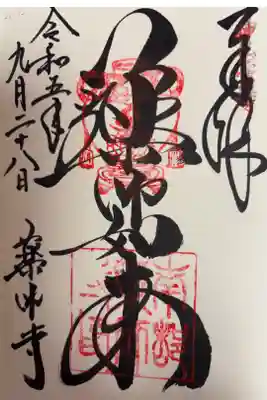 奉拝
薬師如来
令和五年
九月二十八日
薬師寺